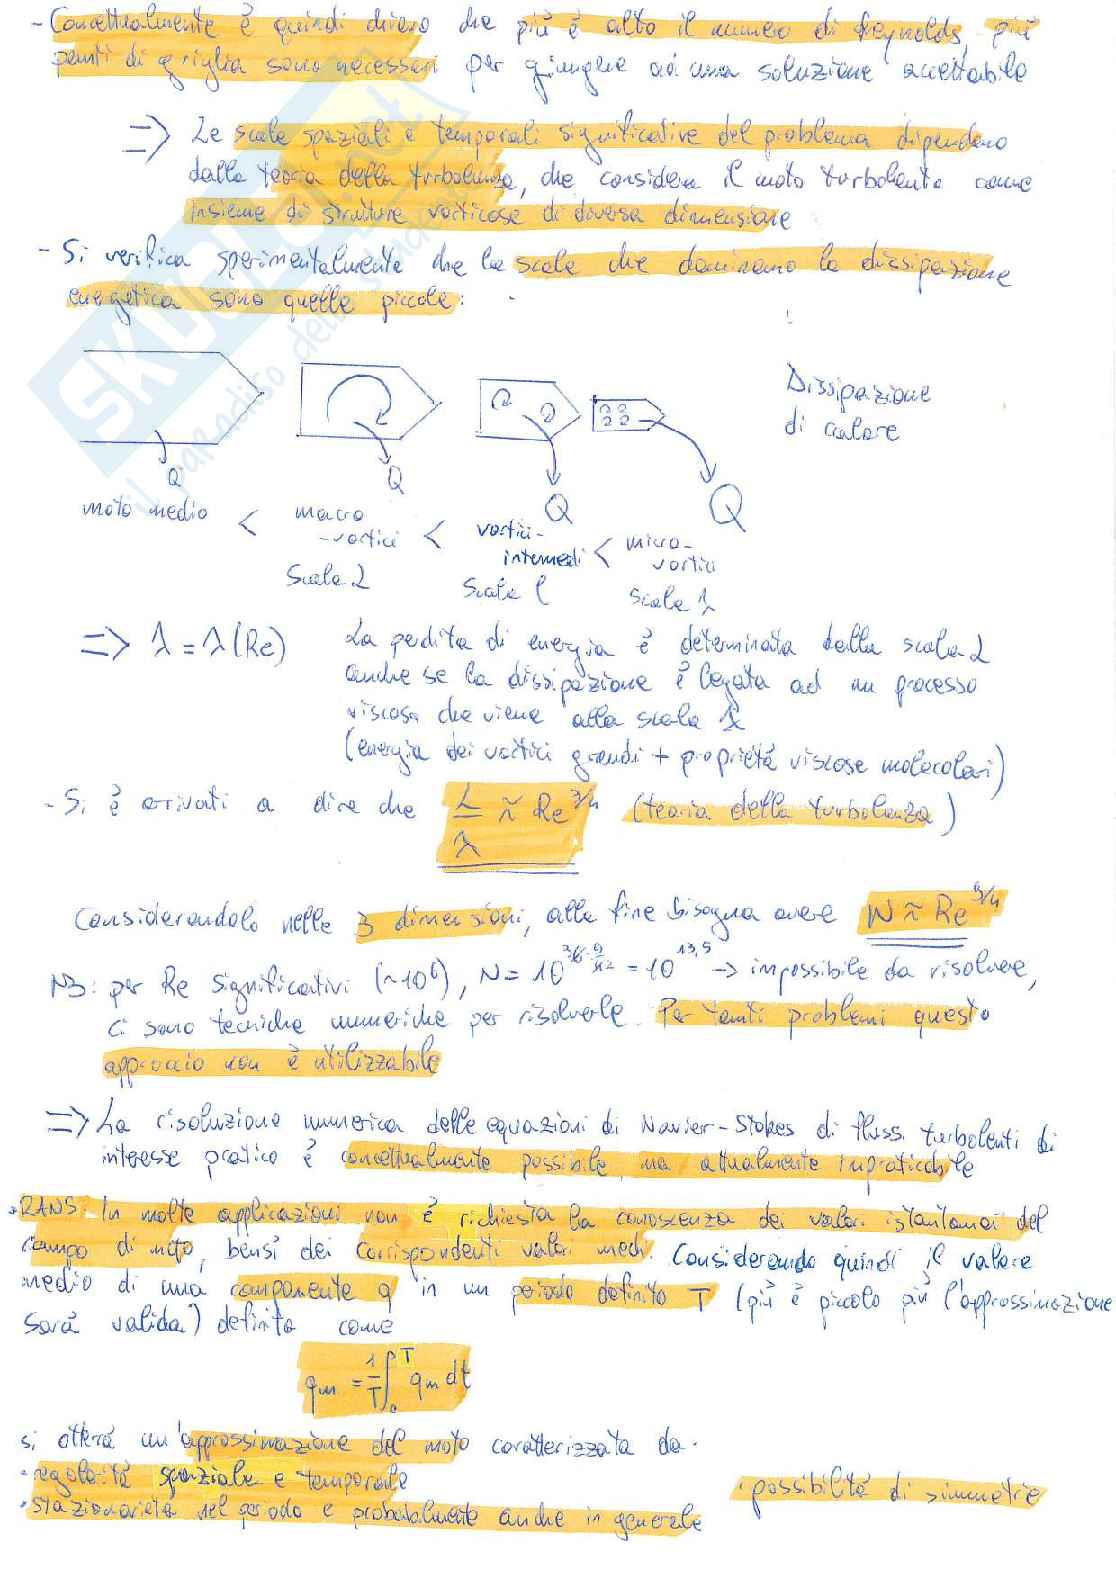 - Concettualmente è quindi chiaro che più è alto il numero di Reynolds, più
punti di griglia sono necessari per giungere ad una soluzione accettabile
=> Le scale spaziali e temporali significative del problema dipendono
dalla teoria della turbolenza, che considera il moto turbolento come
insieme di strutture vorticose di diversa dimensione
- Si verifica sperimentalmente che le scale che dominano la dissipazione
energetica sono quelle piccole:
Dissipazione
di calore
Q Q Q Q
moto medio < macro-vortici < vortici-intermedi < micro-vortici
Scala L Scala l scala λ
=> λ = λ(Re) La perdita di energia è determinata dalla scala L
anche se la dissipazione è legata ad un processo
viscoso che viene alla scala λ
(energia dei vortici grandi + proprietà viscose molecolari)
- Si è arrivati a dire che L/λ ≈ Re^3/4 (teoria della turbolenza)
Considerandolo nelle 3 dimensioni, alla fine bisogna avere N ≈ Re^9/4
NB: per Re significativi (~10^6), N = 10 = 10^13,5 -> impossibile da risolvere,
ci sono tecniche numeriche per risolverle. Per tanti problemi questo
approccio non è utilizzabile
=> La risoluzione numerica delle equazioni di Navier-Stokes di flussi turbolenti di
interesse pratico è concettualmente possibile, ma attualmente impraticabile
• RANS: In molte applicazioni non è richiesta la conoscenza dei valori istantanei del
campo di moto, bensì dei corrispondenti valori medi. Considerando quindi il valore
medio di una componente q in un periodo definito T (più è piccolo più l'approssimazione
sarà valida) definito come
qm = 1/T ∫₀ᵀ qm dt
si otterà un'approssimazione del moto caratterizzata da:
• regolarità spaziale e temporale
• possibilità di simmetrie
• stazionarietà nel periodo e probabilmente anche in generale
SKUOLA.net
il paradiso dello studente